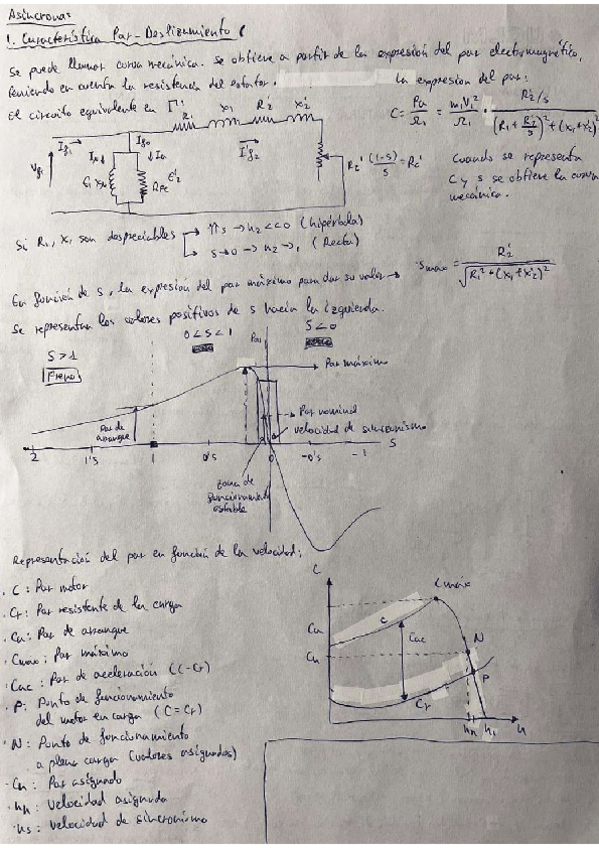 Asíncronas
1. Característica Par-Deslizamiento
Se puede llamar curva mecánica. Se obtiene a partir de la expresión del par electromagnético,
teniendo en cuenta la resistencia del estator.
La expresión del par:
El circuito equivalente en Γ:
R1 X1 R2' X2'
C = Pa/Ω1 = m1V1²/Ω1 · R2'/s / ((R1 + R2'/s)² + (X1+X2')²)
Vf1
R2' (1-s)/s = Rc'
RFe
Cuando se representa
C y s se obtiene la curva
mecánica.
Si R1, X1 son despreciables → ↑↑s → n2 <<0 (hipérbola)
→ s→0 → n2 → (Recta)
En función de s, la expresión del par máximo para dar su valor →
smax = R2' / √(R1² + (X1+X2')²)
Se representan los valores positivos de s hacia la izquierda.
0<s<1
s<0
s>1
Freno
Par
Par máximo
Par nominal
velocidad de sincronismo
Par de
arranque
2 1's 1 0's 0 -0's -1 S
zona de
funcionamiento
estable
Representación del par en función de la velocidad:
· C: Par motor
· Cr: Par resistente de la carga
· Ca: Par de arranque
· Cmax: Par máximo
· Cac: Par de aceleración (C-Cr)
· P: Punto de funcionamiento
del motor en carga (C=Cr)
· N: Punto de funcionamiento
a plena carga (valores asignados)
· Cn: Par asignado
· nn: velocidad asignada
· ns: velocidad de sincronismo
C
Cmáx
Ca
C
Cac
N
Cn
P
Cr
nn ns n